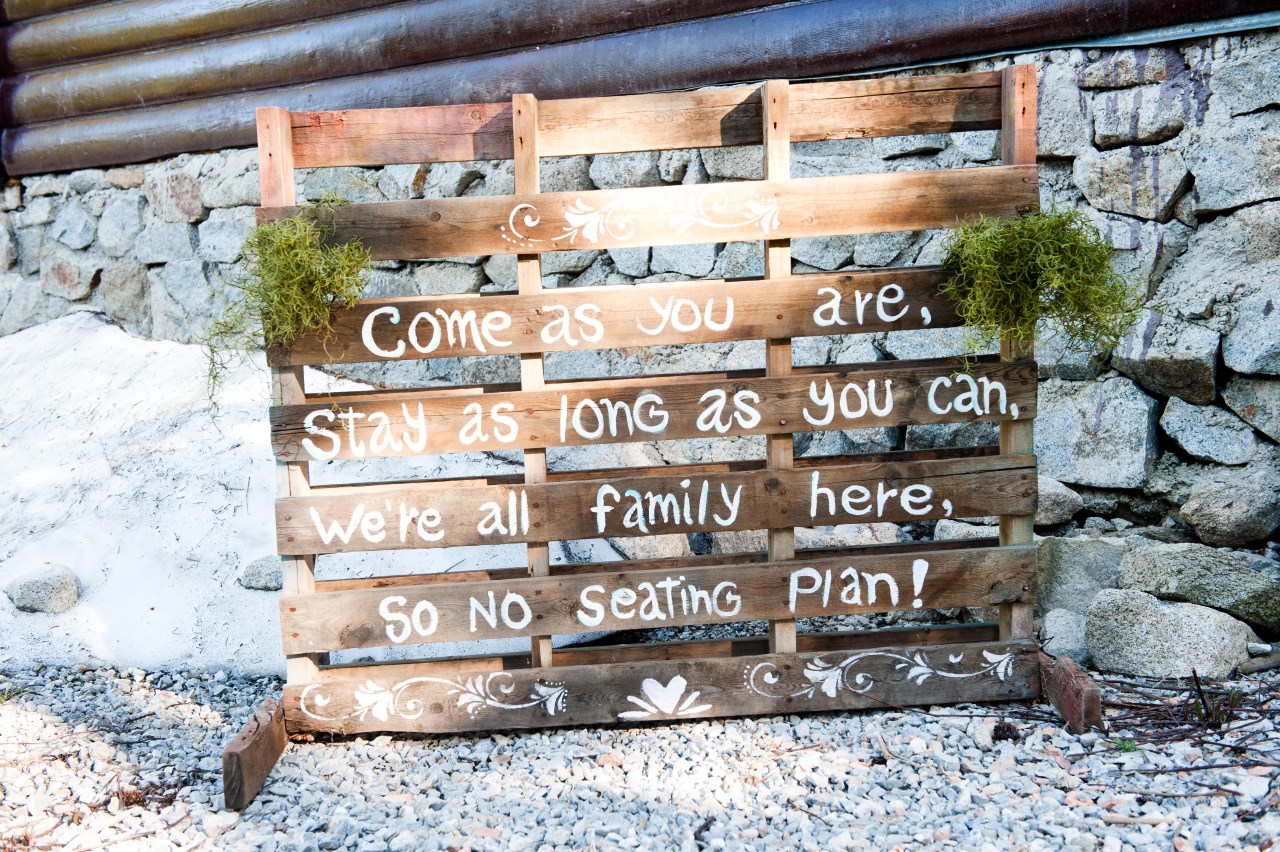 Come as you are,
Stay as long as you can,
We're all family here,
So No seating Plan!